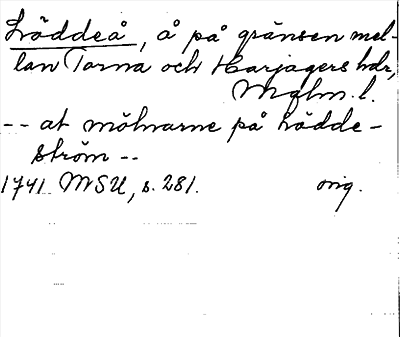 Löddeå, å på gränsen mel-
lan Torna och Harjagers hdr,
Mglm. l.
-- at mölnarne på Lödde-
ström --
1741 MSU, s. 281. orig.